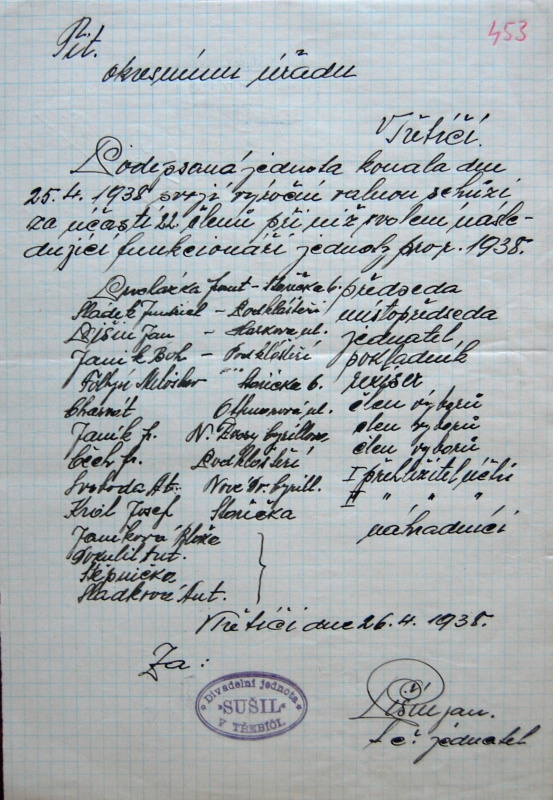 453
Pit.
okresnímu úřadu
V Třebíči.
Podepsaná jednota konala dne
25.4.1938 svoji výroční valnou schůzi
za účasti 22 členů při níž zvoleni násle-
dující funkcionáři jednoty pro r. 1938.
Stařečka 6. předseda
Sládek Jindřich - Podklášteří místopředseda
Lišin Jan - ul. jednatel
Janík Boh. - Podklášteří pokladník
Stařečka 6. režisér
Othmarová ul. člen výborů
Janík fr. N. Dvory Cyrillova člen výborů
Čech fr. Podklášteří člen výborů
Svoboda At. Nové Dv. Cyrill. I přehližitel účtů
Král Josef Stařečka II " " "
Janíková náhradníci
Ant.
Štěpnička
Sládková Ant.
V Třebíči dne 26.4.1938.
Za:
Divadelní jednota
»SUŠIL«
V TŘEBÍČI.
Lišin Jan.
t. č. jednatel